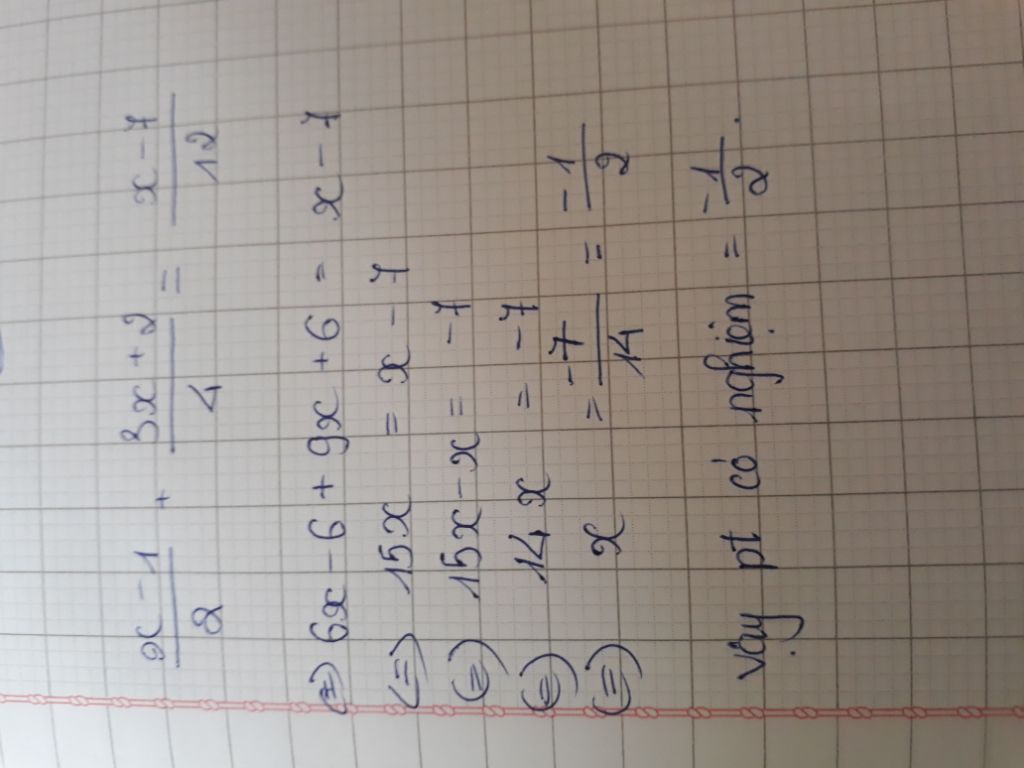 x - 1 / 2 + 3x + 2 / 4 = x - 7 / 12
(=) 6x - 6 + 9x + 6 = x - 7
(=) 15x = x - 7
(=) 15x - x = -7
(=) 14x = -7
(=) x = -7 / 14 = -1 / 2
Vậy pt có nghiệm = -1 / 2.